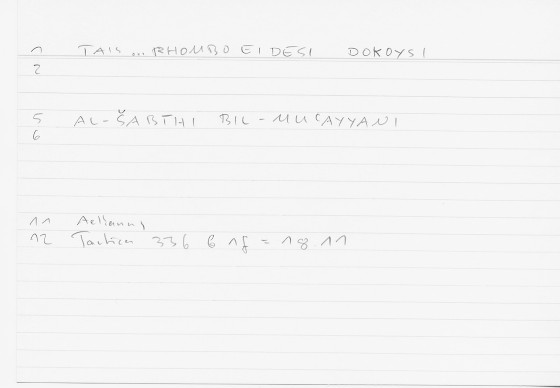 1 TAIS ... RHOMBOEIDESI DOKOYSI
2
5 AL-ŠABTHI BIL-MUʿAYYANI
6
11 Aelianus
12 Tactica 336 6 1f = 18 11